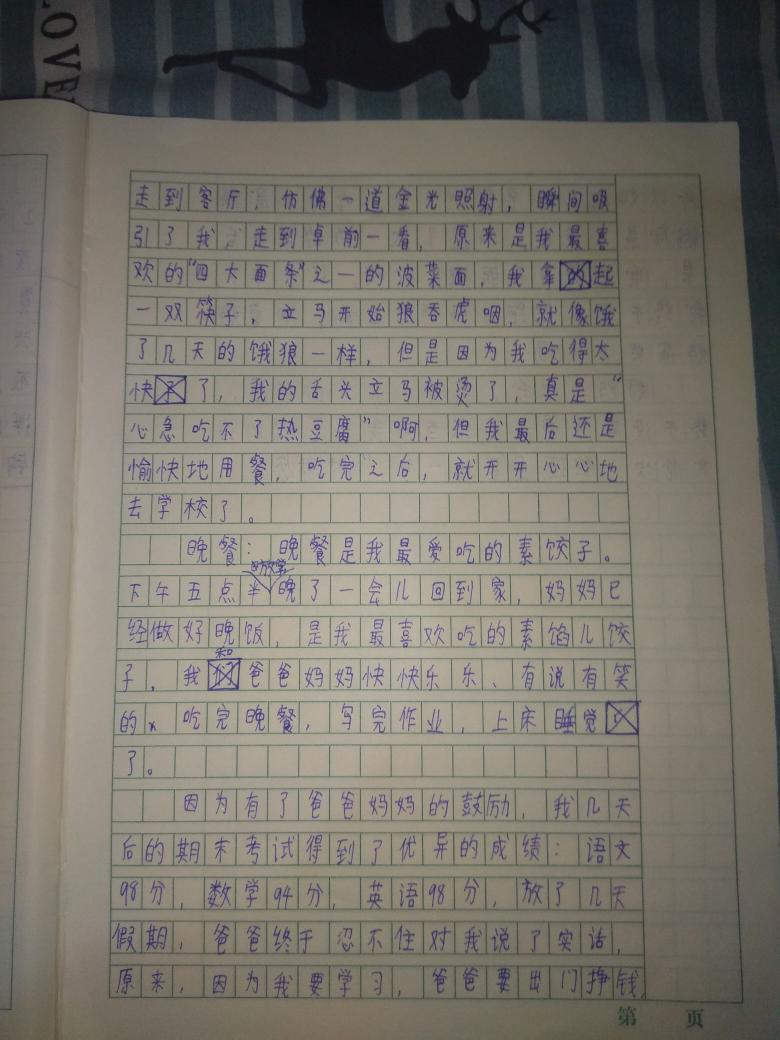 LOVE
走到客厅，仿佛一道金光照射，瞬间吸
引了我，走到卓前一看，原来是我最喜
欢的“四大面条”之一的波菜面，我拿起
一双筷子，立马开始狼吞虎咽，就像饿
了几天的饿狼一样，但是因为我吃得太
快了，我的舌头立马被烫了，真是“
心急吃不了热豆腐”啊，但我最后还是
愉快地用餐，吃完之后，就开开心心地
去学校了。
晚餐：晚餐是我最爱吃的素饺子。
放学
下午五点半晚了一会儿回到家，妈妈已
经做好晚饭，是我最喜欢吃的素馅儿饺
和
子，我爸爸妈妈快快乐乐、有说有笑
的。吃完晚餐，写完作业，上床睡觉
了。
因为有了爸爸妈妈的鼓励，我几天
后的期末考试得到了优异的成绩：语文
98分，数学94分，英语98分，放了几天
假期，爸爸终于忍不住对我说了实话，
原来，因为我要学习，爸爸要出门挣钱，
第 页